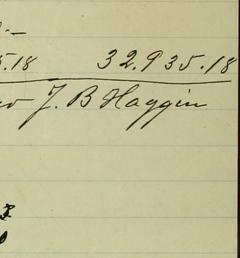 5.18 32.935.18
J. B Haggin